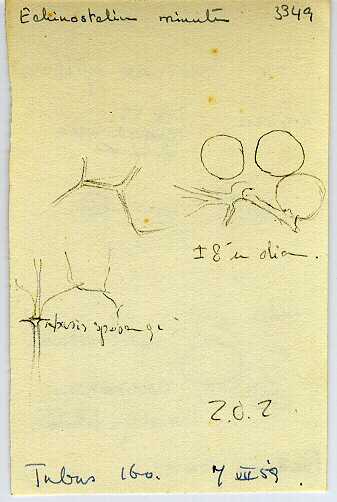 Echinostelium minutum 3349
± 8 u diam.
basis sporangi
2.0.2
Tubus 160. 7 VIII 59.